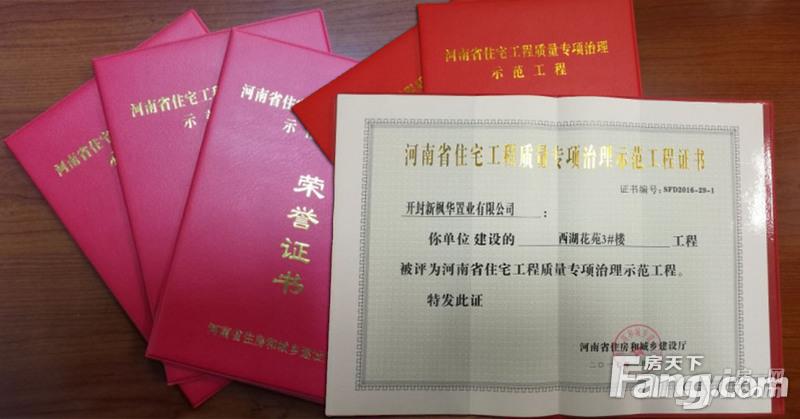 河南省住宅工程质量专项治理
示范工程
河南省住宅工程质
示范
河南省住宅工程
示
荣誉证书
河南省住房和城乡建设
河南省住宅工程质量专项治理
示范工程
河南省住宅工程质量专项治理示范工程证书
证书编号：SFD2016-29-1
开封新枫华置业有限公司：
你单位 建设的 西湖花苑3#楼 工程
被评为河南省住宅工程质量专项治理示范工程。
特发此证
河南省住房和城乡建设厅
二〇一
房天下
Fang.com